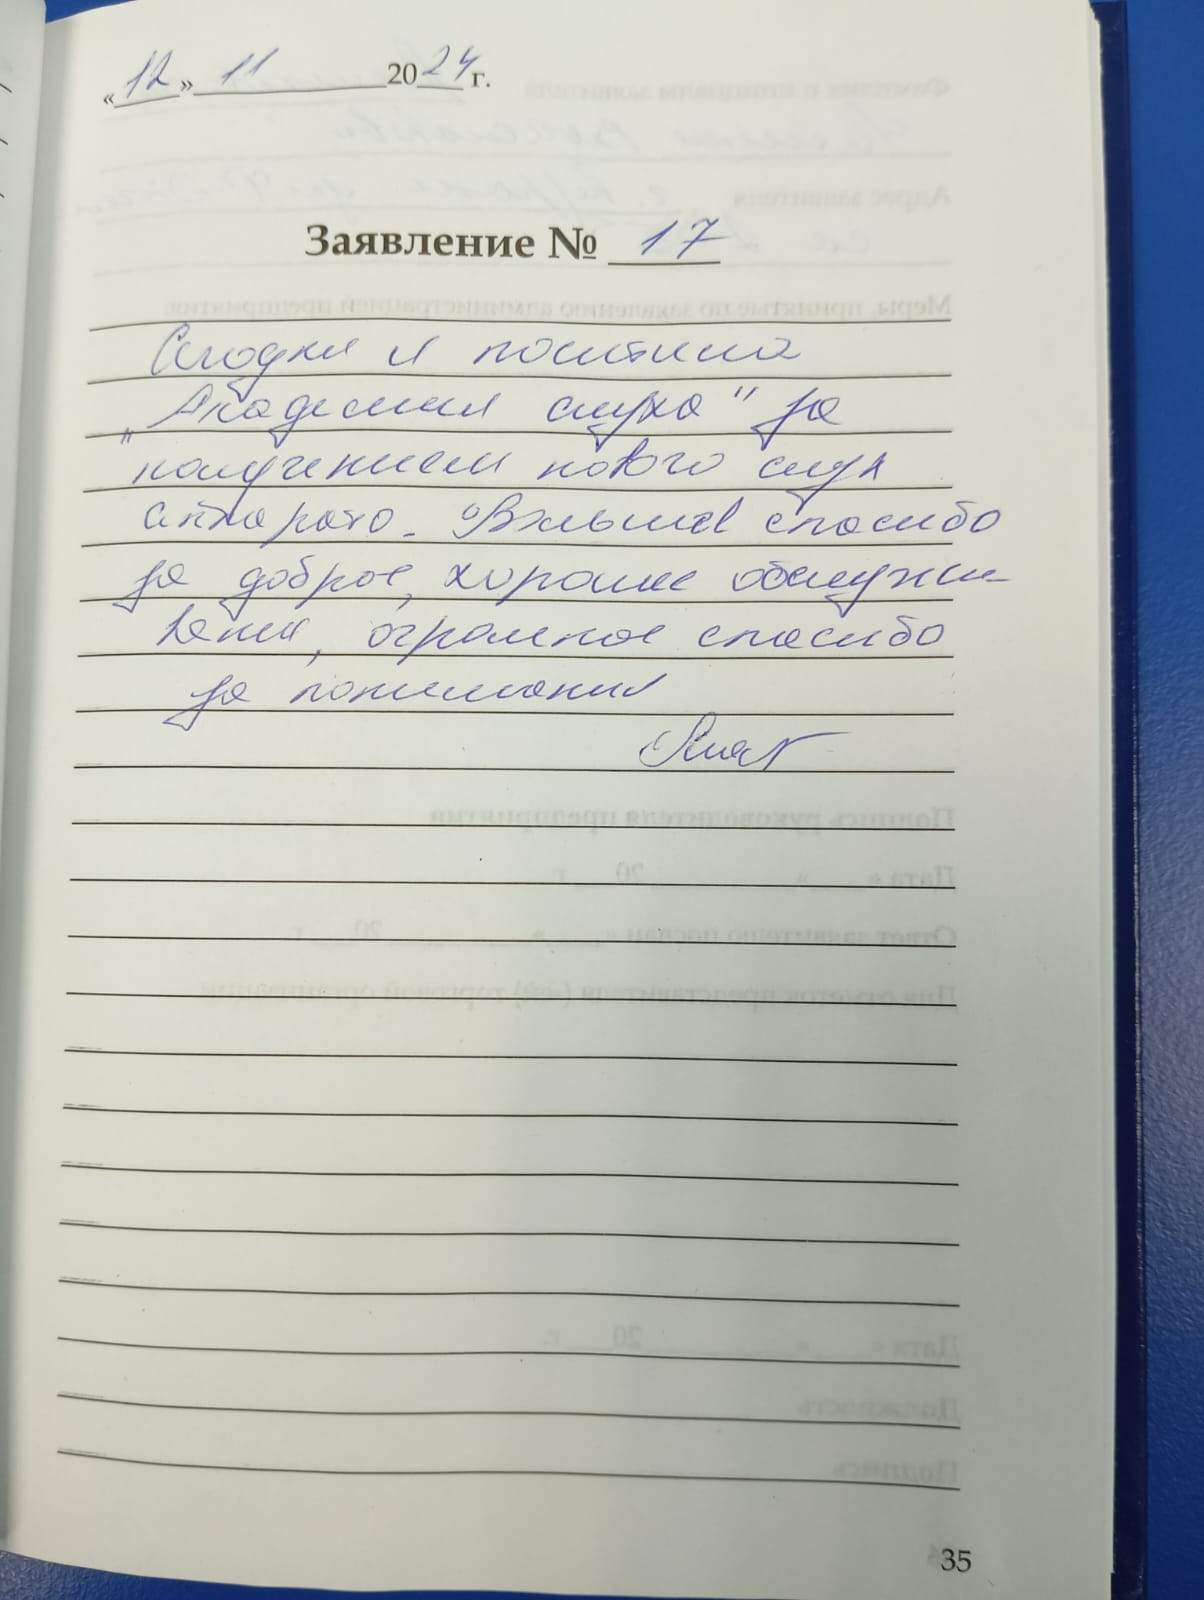 «12» 11 2024 г.
Заявление № 17
Сегодня я посетила
„Академия слуха" за
получением нового слух
аппарата. Большое спасибо
за доброе, хорошее обслужи-
вания, огромное спасибо
за понимания
35